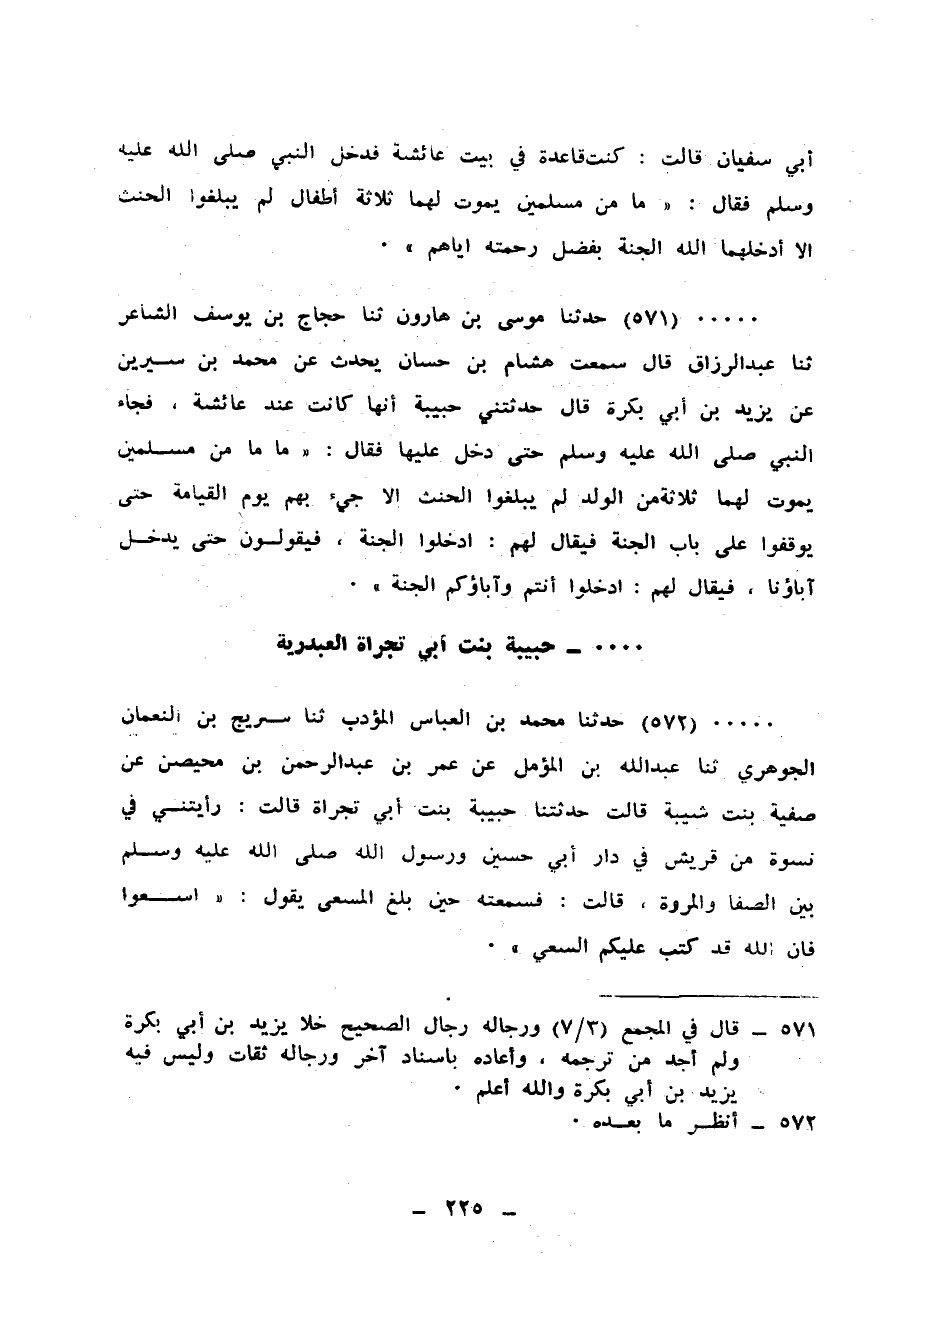 أبي سفيان قالت : كنت قاعدة في بيت عائشة فدخل النبي صلى الله عليه
وسلم فقال : « ما من مسلمين يموت لهما ثلاثة أطفال لم يبلغوا الحنث
الا أدخلهما الله الجنة بفضل رحمته اياهم » ٠
٠٠٠٠٠ (٥٧١) حدثنا موسى بن هارون ثنا حجاج بن يوسف الشاعر
ثنا عبدالرزاق قال سمعت هشام بن حسان يحدث عن محمد بن سيرين
عن يزيد بن أبي بكرة قال حدثتني حبيبة أنها كانت عند عائشة ، فجاء
النبي صلى الله عليه وسلم حتى دخل عليها فقال : « ما ما من مسلمين
يموت لهما ثلاثة من الولد لم يبلغوا الحنث الا جيء بهم يوم القيامة حتى
يوقفوا على باب الجنة فيقال لهم : ادخلوا الجنة ، فيقولون حتى يدخل
آباؤنا ، فيقال لهم : ادخلوا أنتم وآباؤكم الجنة » ٠
٠٠٠٠ ـ حبيبة بنت أبي تجراة العبدرية
٠٠٠٠٠ (٥٧٢) حدثنا محمد بن العباس المؤدب ثنا سريج بن النعمان
الجوهري ثنا عبدالله بن المؤمل عن عمر بن عبدالرحمن بن محيصن عن
صفية بنت شيبة قالت حدثتنا حبيبة بنت أبي تجراة قالت : رأيتني في
نسوة من قريش في دار أبي حسين ورسول الله صلى الله عليه وسلم
بين الصفا والمروة ، قالت : فسمعته حين بلغ المسعى يقول : « اسعوا
فان الله قد كتب عليكم السعي » ٠
٥٧١ ـ قال في المجمع (٧/٣) ورجاله رجال الصحيح خلا يزيد بن أبي بكرة
ولم أجد من ترجمه ، وأعاده باسناد آخر ورجاله ثقات وليس فيه
يزيد بن أبي بكرة والله أعلم ٠
٥٧٢ ـ أنظر ما بعده ٠
ـ ٢٢٥ ـ